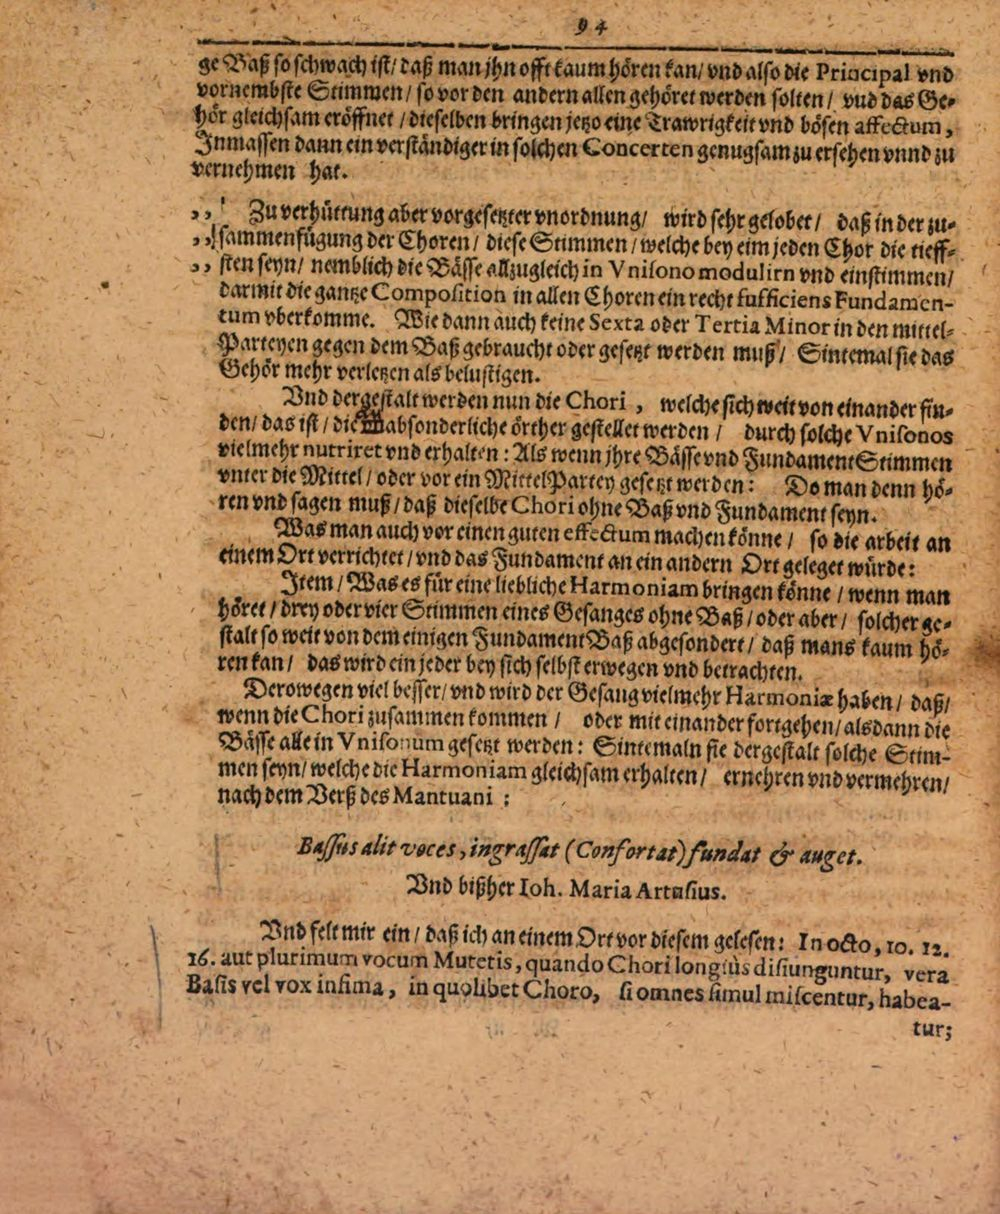 94
ge Baß so schwach ist/ daß man jhn offt kaum hören kan/ vnd also die Principal vnd
vornembste Stimmen/ so vor den andern allen gehöret werden solten/ vnd das Ge-
hör gleichsam eröffnet/ dieselben bringen jetzo eine Trawrigkeit vnd bösen affectum,
Inmassen dann ein verständiger in solchen Concerten genugsam zu ersehen vnnd zu
vernehmen hat.
,, Zu verhüttung aber vorgesetzter vnordnung/ wird sehr gelobet/ daß in der zu-
,, sammenfügung der Choren/ diese Stimmen/ welche bey eim jeden Chor die tieff-
,, sten seyn/ nemblich die Bässe allzugleich in Vnisono modulirn vnd einstimmen/
darmit die gantze Composition in allen Choren ein recht sufficiens Fundamen-
tum vberkomme. Wie dann auch keine Sexta oder Tertia Minor in den mittel-
Parteyen gegen dem Baß gebraucht oder gesetzt werden muß/ Sintemal sie das
Gehör mehr verletzen als belustigen.
Vnd dergestalt werden nun die Chori, welche sich weit von einander fin-
den/ das ist/ die absonderliche örther gestellet werden/ durch solche Vnisonos
vielmehr nutriret vnd erhalten: Als wenn jhre Bässe vnd Fundament Stimmen
vnter die Mittel/ oder vor ein Mittel Partey gesetzt werden: Do man denn hö-
ren vnd sagen muß/ daß dieselbe Chori ohne Baß vnd Fundament seyn.
Was man auch vor einen guten effectum machen könne/ so die arbeit an
einem Ort verrichtet/ vnd das Fundament an ein andern Ort geleget würde:
Item/ Was es für eine liebliche Harmoniam bringen könne/ wenn man
höret/ drey oder vier Stimmen eines Gesanges ohne Baß/ oder aber/ solcher ge-
stalt so weit von dem einigen Fundament Baß abgesondert/ daß mans kaum hö-
ren kan/ das wird ein jeder bey sich selbst erwegen vnd betrachten.
Derowegen viel besser/ vnd wird der Gesang vielmehr Harmoniæ haben/ daß/
wenn die Chori zusammen kommen/ oder mit einander fortgehen/ alsdann die
Bässe alle in Vnisonum gesetzt werden: Sintemaln sie dergestalt solche Stim-
men seyn/ welche die Harmoniam gleichsam erhalten/ ernehren vnd vermehren/
nach dem Verß des Mantuani:
Bassus alit voces, ingrassat (Confortat) fundat & auget.
Vnd bißher Ioh. Maria Artusius.
Vnd felt mir ein/ daß ich an einem Ort vor diesem gelesen: In octo, 10. 12.
16. aut plurimum vocum Mutetis, quando Chori longiùs disiunguntur, vera
Basis vel vox infima, in quolibet Choro, si omnes simul miscentur, habea-
tur;